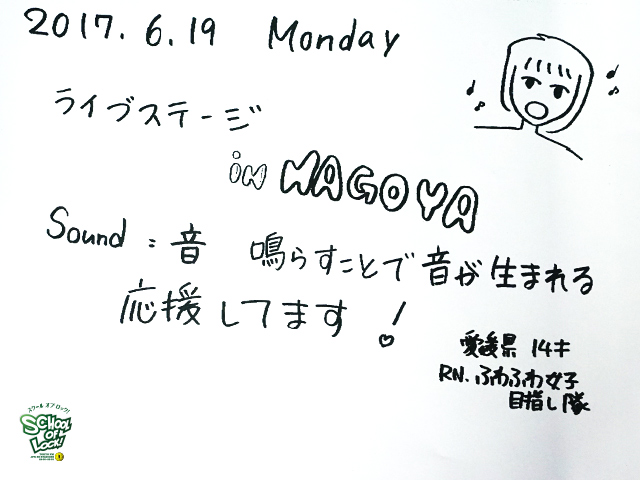 2017. 6. 19 Monday
ライブステージ
in NAGOYA
Sound : 音 鳴らすことで音が生まれる
応援してます!
愛媛県 14才
RN. ふわふわ女子
目指し隊
スクール オブ ロック!
SCHOOL
OF
LOCK!